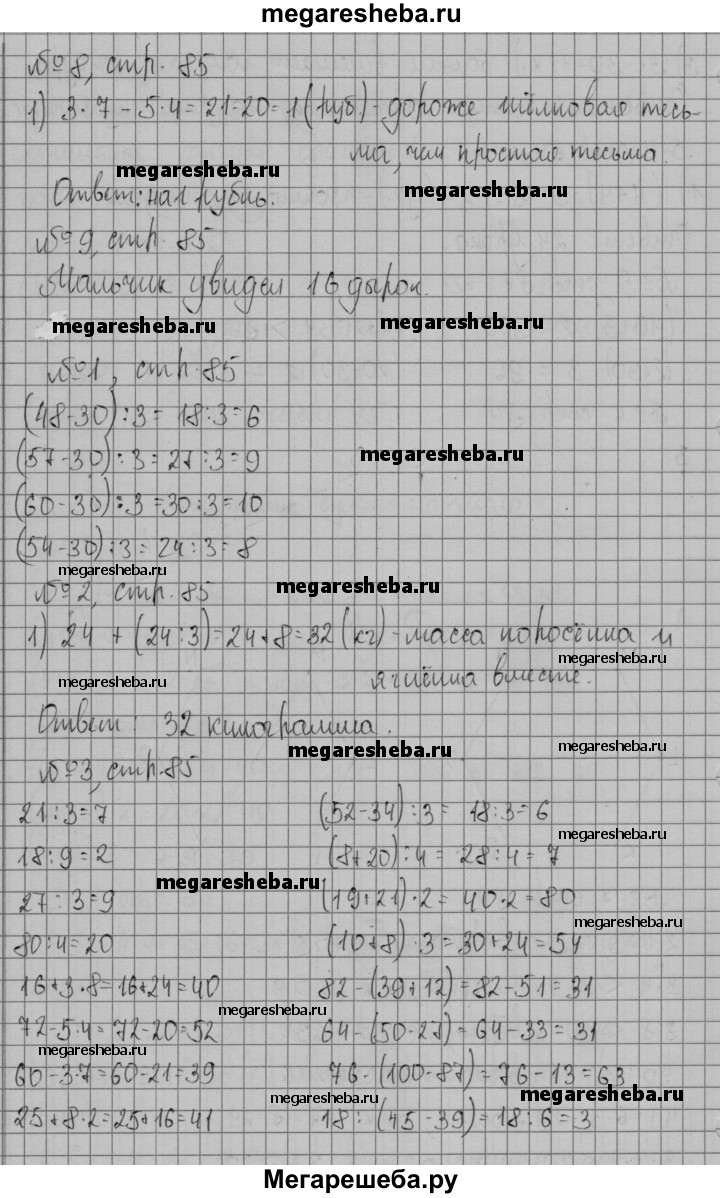 megaresheba.ru
№ 8, стр. 85
1) 3·7 - 5·4 = 21-20 = 1 (руб) - дороже шёлковая тесь-
ма, чем простая тесьма.
megaresheba.ru
megaresheba.ru
Ответ: на 1 рубль.
№ 9, стр. 85
Мальчик увидел 16 дырок.
megaresheba.ru
megaresheba.ru
№ 1, стр. 85
(48-30) : 3 = 18:3 = 6
(57-30) : 3 = 27:3 = 9
megaresheba.ru
(60-30) : 3 = 30:3 = 10
(54-30) : 3 = 24:3 = 8
megaresheba.ru
megaresheba.ru
№ 2, стр. 85
1) 24 + (24:3) = 24+8 = 32 (кг) - масса поросёнка и
megaresheba.ru
ягнёнка вместе.
megaresheba.ru
Ответ: 32 килограмма.
megaresheba.ru
megaresheba.ru
№ 3, стр. 85
21:3=7
18:9=2
27:3=9
80:4=20
16+3·8=16+24=40
72-5·4=72-20=52
60-3·7=60-21=39
25+8·2=25+16=41
(52-34):3 = 18:3=6
(8+20):4 = 28:4 = 7
(19+21)·2 = 40·2=80
(10+8)·3=30+24=54
82-(39+12)=82-51=31
64-(50-27)-64-33=31
76-(100-87)=76-13=63
18:(45-39)=18:6=3
megaresheba.ru
megaresheba.ru
megaresheba.ru
megaresheba.ru
megaresheba.ru
megaresheba.ru
megaresheba.ru
Мегарешеба.ру